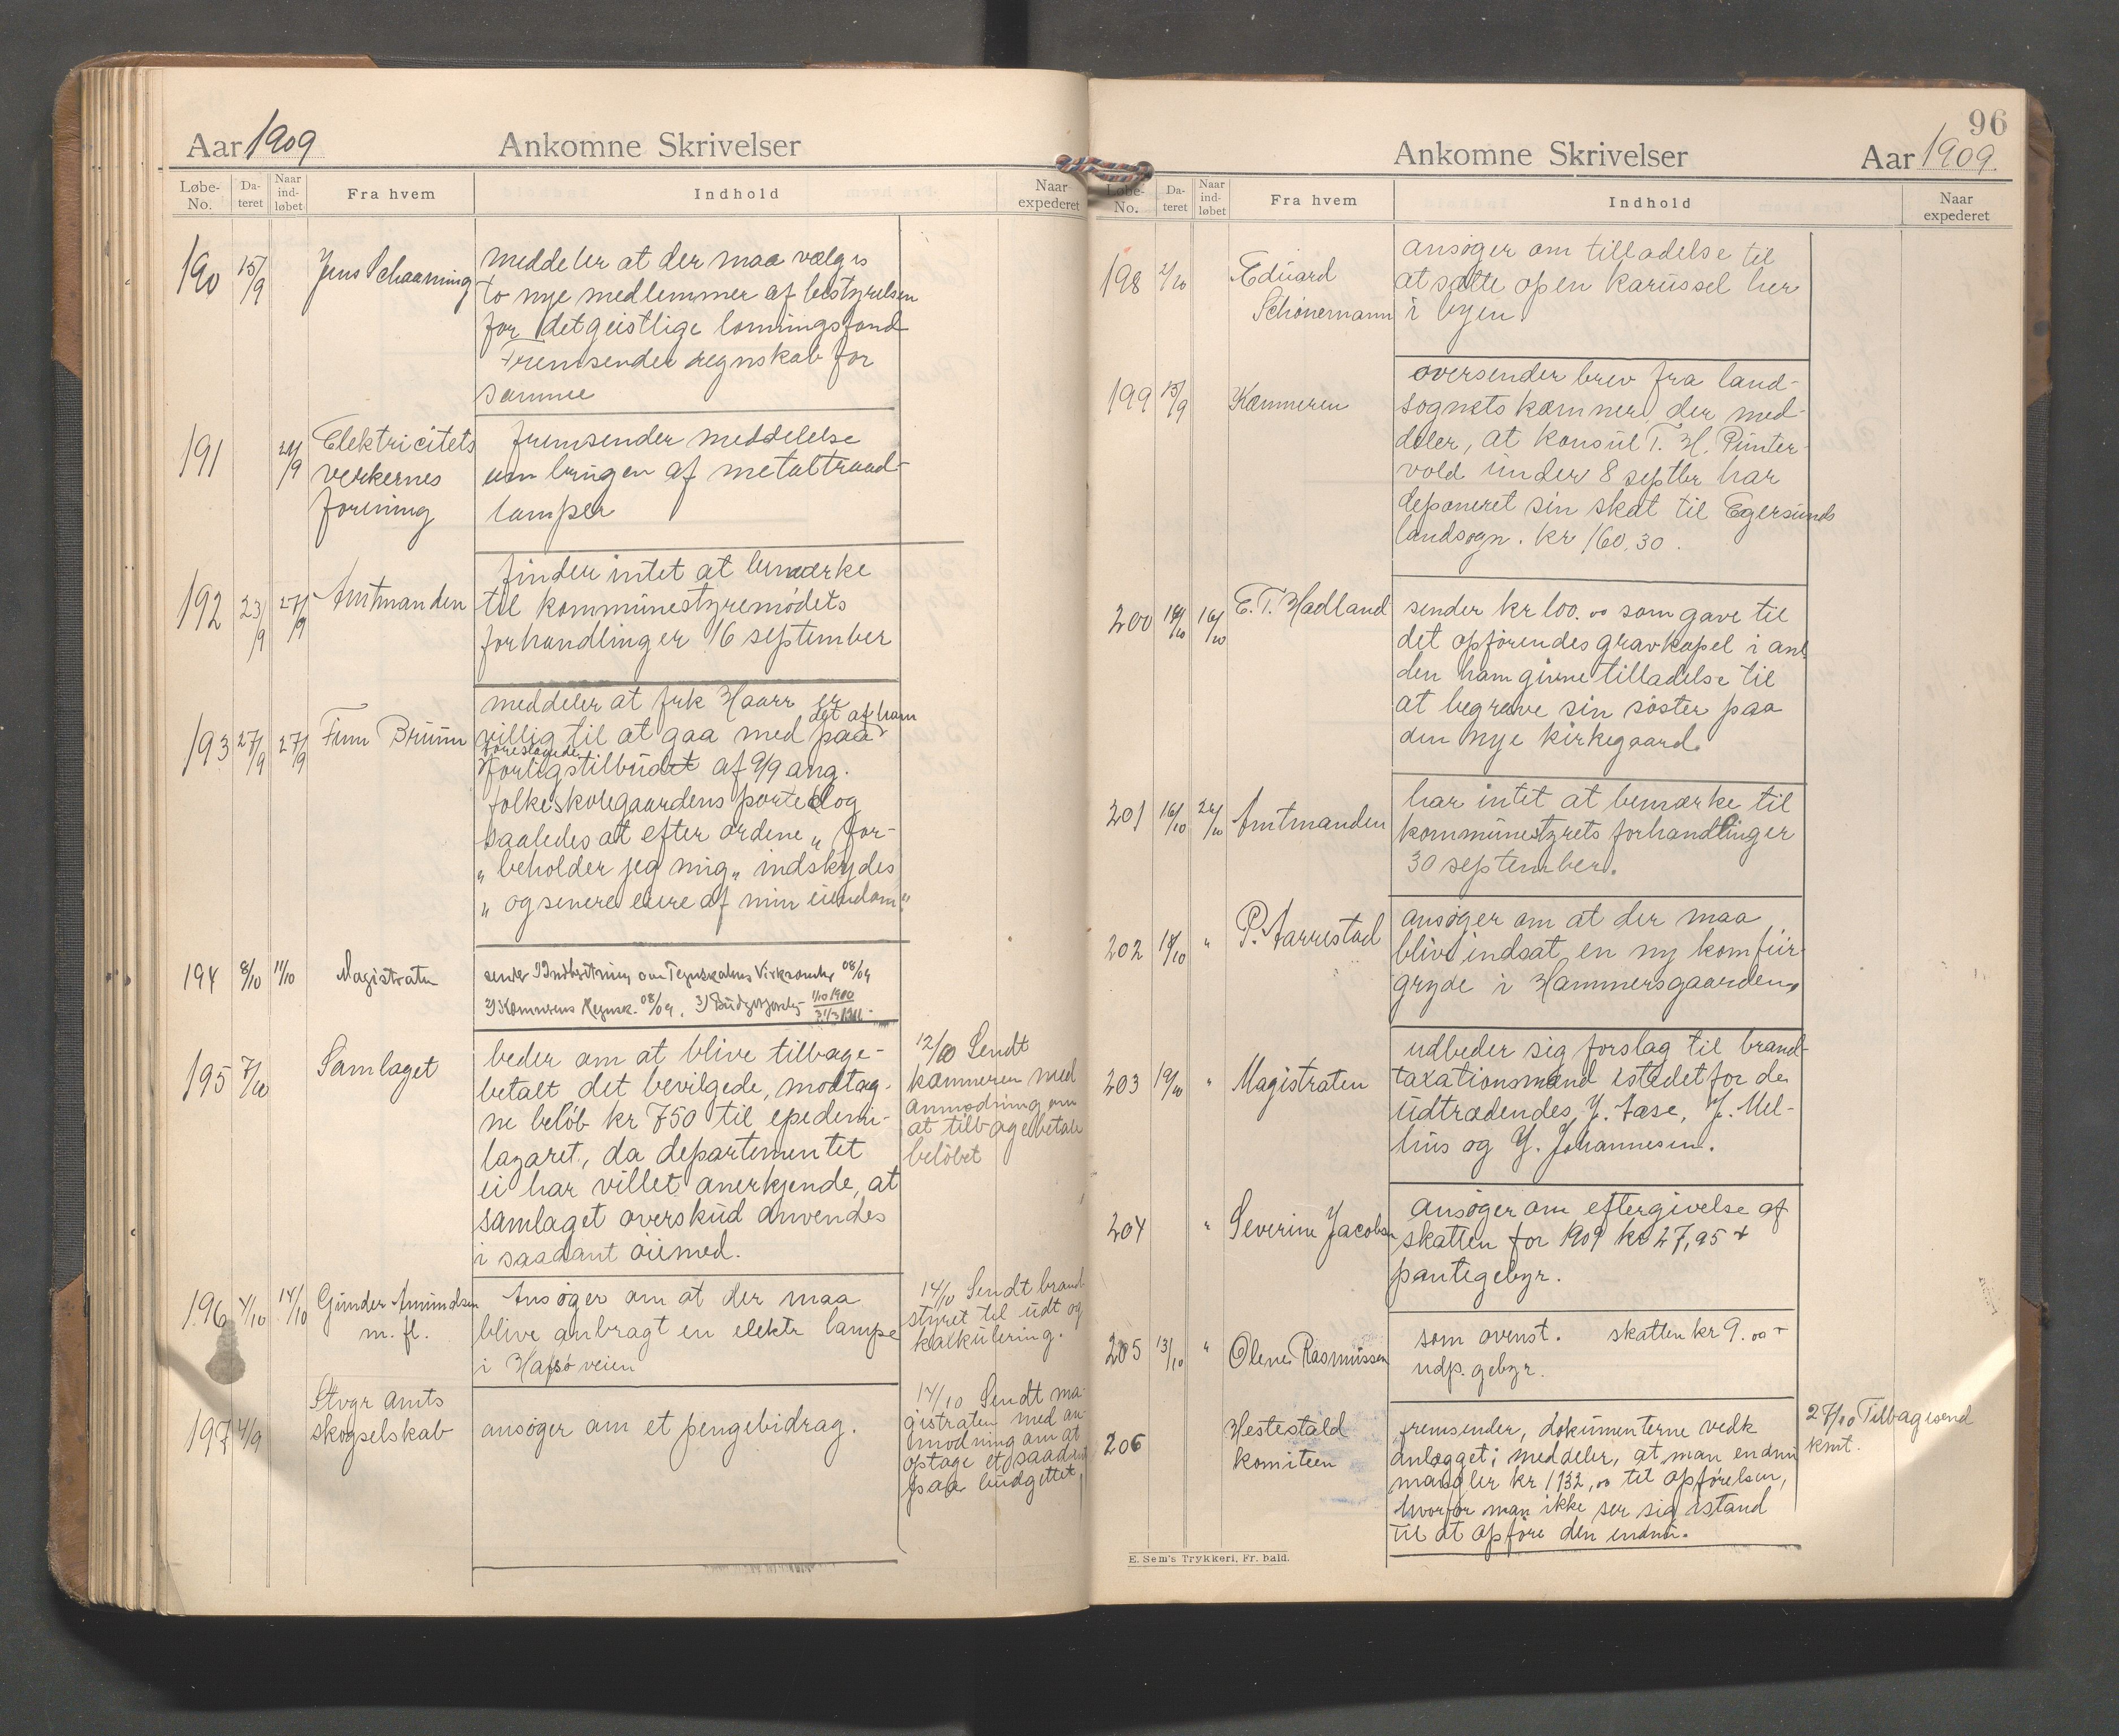 Aar 1909
Ankomne Skrivelser
Løbe-No. Dateret Naar indløbet Fra hvem Indhold Naar expederet
190 15/9 Jens Schaanning
meddeler at der maa vælges
to nye medlemmer af bestyrelsen
for det geistlige lønningsfond
Fremsender regnskab for
samme
191 24/9 Elektricitets
verkernes
forening
fremsender meddelelse
om brugen af metaltraad-
lamper
192 23/9 27/9 Amtmanden
finder intet at bemærke
til kommunestyremødets
forhandlinger 16 september
193 27/9 27/9 Finn Bruun
meddeler at frk Haarr er
villig til at gaa med paa det af ham
foreslagede
forligstilbudet af 9/9 ang.
folkeskolegaardens porte og
saaledes at efter ordene „ for-
„ beholder jeg mig „ indskydes
„ og senere eiere af min eiendom "
194 8/10 11/10 Magistraten
sender 1) Indberetning om Tegneskolens Virksomhet 08/09
2) Kæmnerens Regnsk. 08/09. 3) Budgetforslag 1/10 1900
31/3 1911
195 7/10 Samlaget
beder om at blive tilbage-
betalt det bevilgede, modtag-
ne beløb kr 750 til epedemi-
lazaret, da departementet
ei har villet anerkjende, at
samlaget overskud anvendes
i saadant øiemed.
12/10 Sendt
kæmneren med
anmodning om
at tilbagebetale
beløbet
196 4/10 14/10 Gunder Amundsen
m. fl.
Ansøger om at der maa
blive anbragt en elektr lampe
i Hafsøveien
14/10 Sendt brand-
styret til udt og
kalkulering.
197 4/9 Stvgr amts
skogselskab
ansøger om et pengebidrag.
14/10 Sendt ma-
gistraten med an-
modning om at
optage et saadant
paa budgettet
96
Ankomne Skrivelser
Aar 1909.
Løbe-No. Dateret Naar indløbet Fra hvem Indhold Naar expederet
198 2/10 Eduard
Schönemann
ansøger om tilladelse til
at sætte op en karussel her
i byen.
199 15/9 Kæmneren
oversender brev fra land-
sognets kæmner, der med-
deler, at konsul T. H. Punter-
vold under 8 septbr har
deponeret sin skat til Egersunds
landsogn. kr 160,30.
200 14/10 16/10 E. T. Hadland
sender kr 100.00 som gave til
det opførendes gravkapel i anl.
den ham givne tilladelse til
at begrave sin søster paa
den nye kirkegaard.
201 16/10 24/10 Amtmanden
har intet at bemærke til
kommunestyrets forhandlinger
30 september.
202 18/10 " P. Aarrestad
ansøger om at der maa
blive indsat en ny komfür-
gryde i Hammersgaarden
203 19/10 " Magistraten
udbeder sig forslag til brand-
taxationsmænd istedetfor de
udtrædendes, J. Aase, J. Mel-
hus og Y. Johannesen.
204 " Severine Jacobsen
Ansøger om eftergivelse af
skatten for 1909 kr 27,95 +
pantegebyr.
205 13/10 " Olene Rasmussen
som ovenst. skatten kr 9.00 +
udp. gebyr.
206 Hestestald
komiteen
fremsender, dokumenterne vedk
anlægget; meddeler, at man endnu
mangler kr 1132,00 til opførelsen,
hvorfor man ikke ser sig istand
til at opføre den endnu.
27/10 Tilbagesend
kmt.
E. Sem's Trykkeri, Fr.hald.